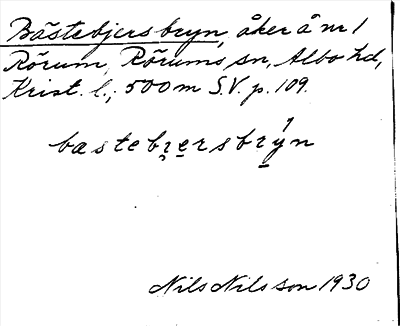 Bästebjersbryn, åker å nr 1
Rörum, Rörums sn, Albo hd,
Krist. l., 500 m S.V. p. 109.
bastebjersbrýn
Nils Nilsson 1930